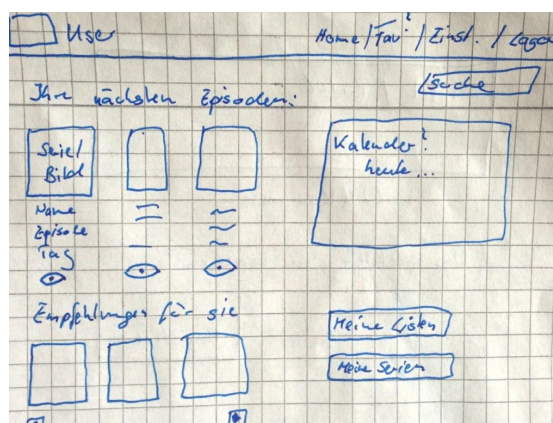 User
Home / Fav? / Einst. / Logou
Suche
Ihre nächsten Episoden:
Serie/
Bild
Name
Episode
Tag
Kalender?
heute...
Empfehlungen für sie
Meine Listen
Meine Serien